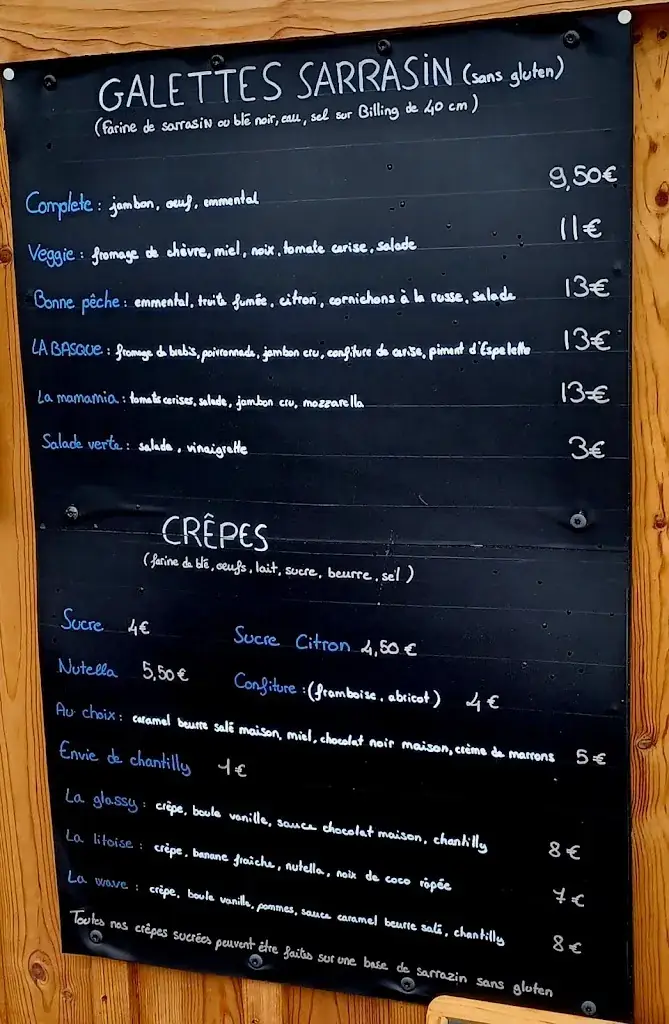 GALETTES SARRASIN (sans gluten)
(farine de sarrasin ou blé noir, eau, sel sur Billing de 40 cm)
Complete : jambon, œuf, emmental 9,50€
Veggie : fromage de chèvre, miel, noix, tomate cerise, salade 11€
Bonne pêche : emmental, truite fumée, citron, cornichons à la russe, salade 13€
LA BASQUE : fromage de brebis, poivronnade, jambon cru, confiture de cerise, piment d'Espelette 13€
La mamamia : tomates cerises, salade, jambon cru, mozzarella 13€
Salade verte : salade, vinaigrette 3€
CRÊPES
(farine de blé, oeufs, lait, sucre, beurre, sel)
Sucre 4€ Sucre Citron 4,50€
Nutella 5,50€ Confiture : (framboise, abricot) 4€
Au choix : caramel beurre salé maison, miel, chocolat noir maison, crème de marrons 5€
Envie de chantilly 1€
La glassy : crêpe, boule vanille, sauce chocolat maison, chantilly 8€
La litoise : crêpe, banane fraîche, nutella, noix de coco râpée 7€
La wave : crêpe, boule vanille, pommes, sauce caramel beurre salé, chantilly 8€
Toutes nos crêpes sucrées peuvent être faites sur une base de sarrazin sans gluten